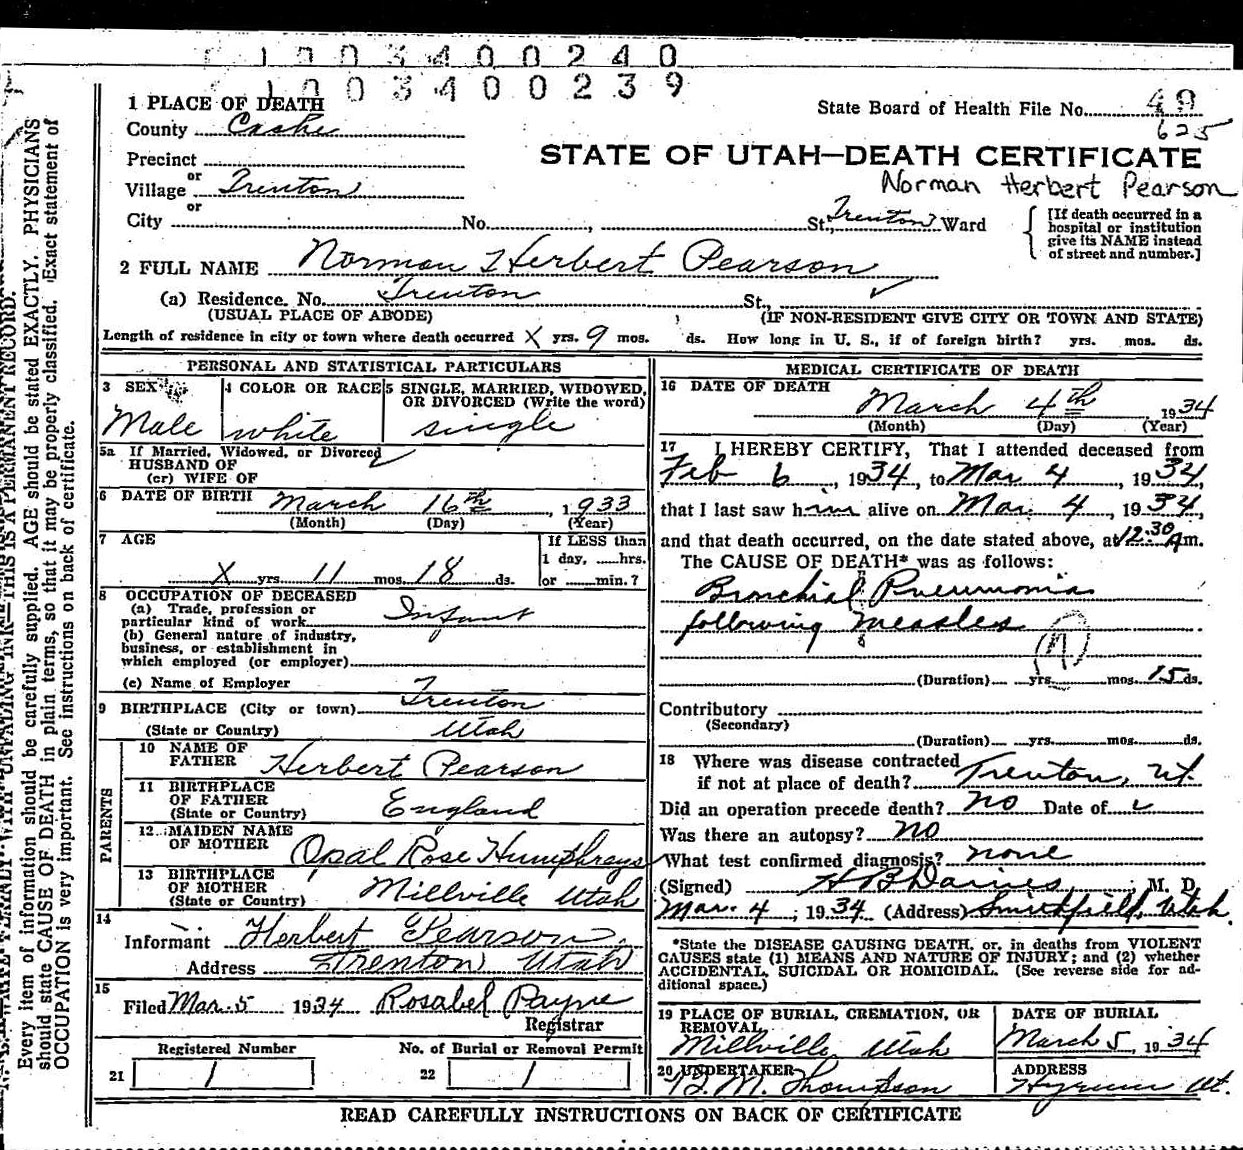 1003400240
1003400239
1 PLACE OF DEATH
County Cache
State Board of Health File No. 49
625
Precinct
or
Village Trenton
or
City No. , St., Trenton Ward
STATE OF UTAH—DEATH CERTIFICATE
Norman Herbert Pearson
[If death occurred in a
hospital or institution
give its NAME instead
of street and number.]
2 FULL NAME Norman Herbert Pearson
(a) Residence. No. Trenton St., ✓
(USUAL PLACE OF ABODE) (IF NON-RESIDENT GIVE CITY OR TOWN AND STATE)
Length of residence in city or town where death occurred X yrs. 9 mos. ds. How long in U. S., if of foreign birth? yrs. mos. ds.
PERSONAL AND STATISTICAL PARTICULARS
3 SEX 4 COLOR OR RACE 5 SINGLE, MARRIED, WIDOWED,
OR DIVORCED (Write the word)
Male white single
5a If Married, Widowed, or Divorced
HUSBAND OF
(or) WIFE OF
6 DATE OF BIRTH March 16th, 1933
(Month) (Day) (Year)
7 AGE If LESS than
1 day, hrs.
X yrs. 11 mos. 18 ds. or min.?
8 OCCUPATION OF DECEASED
(a) Trade, profession or
particular kind of work Infant
(b) General nature of industry,
business, or establishment in
which employed (or employer)
(c) Name of Employer
9 BIRTHPLACE (City or town) Trenton
(State or Country) Utah
PARENTS
10 NAME OF
FATHER Herbert Pearson
11 BIRTHPLACE
OF FATHER England
(State or Country)
12 MAIDEN NAME
OF MOTHER Opal Rose Humphreys
13 BIRTHPLACE
OF MOTHER Millville Utah
(State or Country)
14
Informant Herbert Pearson
Address Trenton Utah
15
Filed Mar. 5 1934 Rosabel Payne
Registrar
Registered Number No. of Burial or Removal Permit
21 1 22 1
MEDICAL CERTIFICATE OF DEATH
16 DATE OF DEATH
March 4th, 1934
(Month) (Day) (Year)
17 I HEREBY CERTIFY, That I attended deceased from
Feb 6, 1934, to Mar 4, 1934,
that I last saw him alive on Mar. 4, 1934,
and that death occurred, on the date stated above, at 12:30 Am.
The CAUSE OF DEATH* was as follows:
Bronchial Pneumonia
following measles
(Duration) yrs. mos. 15 ds.
Contributory
(Secondary)
(Duration) yrs. mos. ds.
18 Where was disease contracted
if not at place of death? Trenton, Ut.
Did an operation precede death? no Date of
Was there an autopsy? no
What test confirmed diagnosis? none
(Signed) H B Daines, M. D.
Mar. 4, 1934 (Address) Smithfield, Utah.
*State the DISEASE CAUSING DEATH, or, in deaths from VIOLENT
CAUSES state (1) MEANS AND NATURE OF INJURY; and (2) whether
ACCIDENTAL, SUICIDAL OR HOMICIDAL. (See reverse side for ad-
ditional space.)
19 PLACE OF BURIAL, CREMATION, OR
REMOVAL
Millville, Utah
DATE OF BURIAL
March 5, 1934
20 UNDERTAKER
B. M. Thompson
ADDRESS
Hyrum Ut.
READ CAREFULLY INSTRUCTIONS ON BACK OF CERTIFICATE
Every item of information should be carefully supplied. AGE should be stated EXACTLY. PHYSICIANS
should state CAUSE OF DEATH in plain terms, so that it may be properly classified. Exact statement of
OCCUPATION is very important. See instructions on back of certificate.